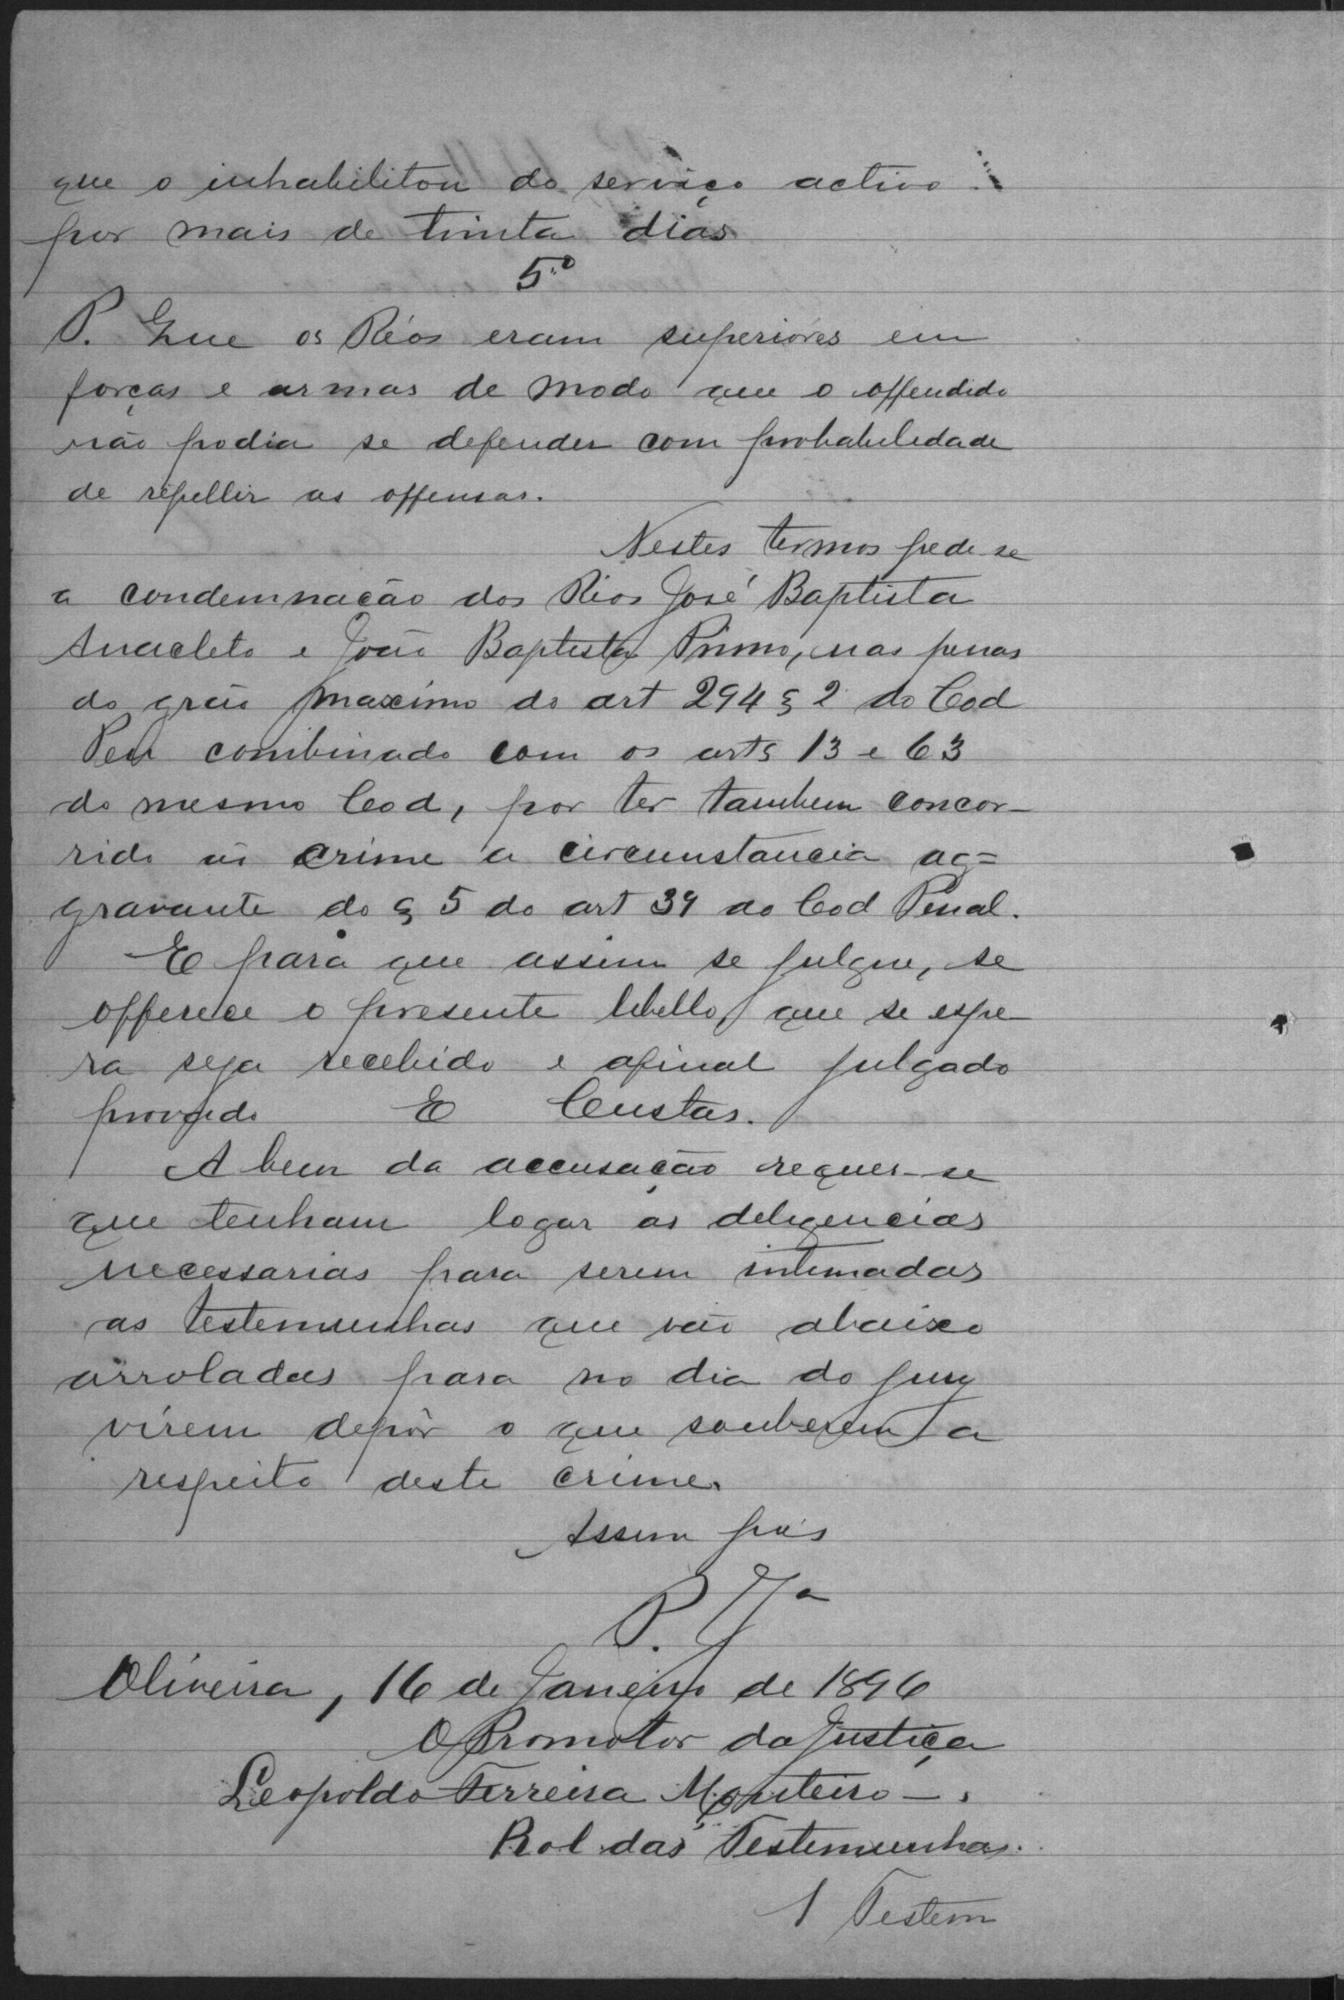 que o inhabilitou do serviço activo
por mais de trinta dias
5º
P. Que os Réos eram superiores em
forças e armas de modo que o offendido
não podia se defender com probabilidade
de repellir as offensas.
Nestes termos pede-se
a condemnação dos Réos José Baptista
Anacleto e João Baptista Primo, nas penas
do gráo maximo do art 294 § 2 do Cod
Pen combinado com os arts 13 e 63
do mesmo Cod, por ter tambem concor-
rido ao crime a circumstancia ag=
gravante do § 5 do art 39 do Cod Penal.
E para que assim se julgue, se
offerece o presente libello, que se espe-
ra seja recebido e afinal julgado
provado E Custas.
A bem da accusação requer-se
que tenham logar as deligencias
necessarias para serem intimadas
as testemunhas que vão abaixo
arroladas para no dia do jury
virem depôr o que souberem a
respeito deste crime.
Assim pois
P. Jª
Oliveira, 16 de Janeiro de 1896
O Promotor da Justiça
Leopoldo Ferreira Monteiro
Rol das Testemunhas.
1 Testem